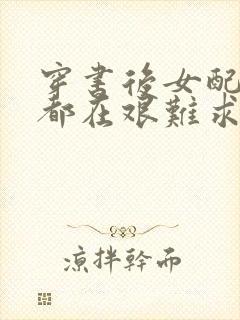 穿書後女配
都在艱難求
涼拌幹而